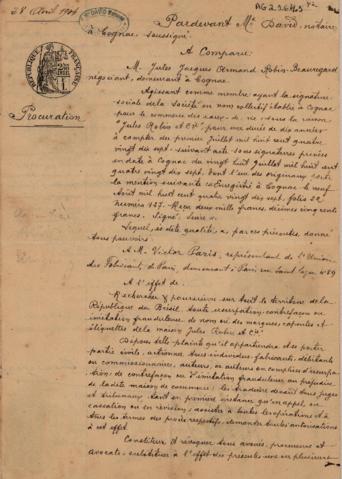 28 Avril 1904
Pardevant Me David, notaire,
à Cognac, soussigné
A Comparu:
M. Jules Jacques Armand Robin-Beauregard
négociant, demeurant à Cognac
RÉPUBLIQUE FRANÇAISE
Agissant comme membre ayant la signature
sociale de la Société en nom collectif établie à Cognac
pour le commerce des eaux-de-vie, sous la raison
"Jules Robin et Cie" pour une durée de dix années
à compter du premier Juillet mil huit cent quatre
vingt dix sept, suivant acte sous signatures privées
en date à Cognac du vingt huit Juillet mil huit cent
quatre vingt dix sept, dont l'un des originaux porte
la mention suivante "Enregistré à Cognac le neuf
Août mil huit cent quatre vingt dix sept, folio 22
Reçu deux mille francs, décimes cinq cents
francs. Signé:
Procuration
Lequel, en dite qualité, a, par ces présentes, donné
tous pouvoirs
A M. Victor Paris, représentant de l'Union
des Fabricants de Paris, demeurant à Paris,
A l'effet de
Rechercher & poursuivre sur tout le territoire de la
République du Brésil toute usurpation, contrefaçon ou
imitation frauduleuse de nom ou de marques, capsules et
étiquettes de la maison Jules Robin et Cie
Déposer telle plainte qu'il appartiendra et se porter
partie civile, actionner tous individus, fabricants, débitants
ou commissionnaires, auteurs, co auteurs ou complices d'usurpa-
tion, de contrefaçon ou d'imitation frauduleuse, au préjudice
de la dite maison de commerce; les traduire devant tous juges
et tribunaux, tant en première instance qu'en appel, en
cassation ou en révision; assister à toutes les opérations et à
tous les termes des procès respectifs, demander toutes autorisations
à cet effet.
Constituer et révoquer tous avoués, procureurs et
avocats, substituer à l'effet des présentes une ou plusieurs